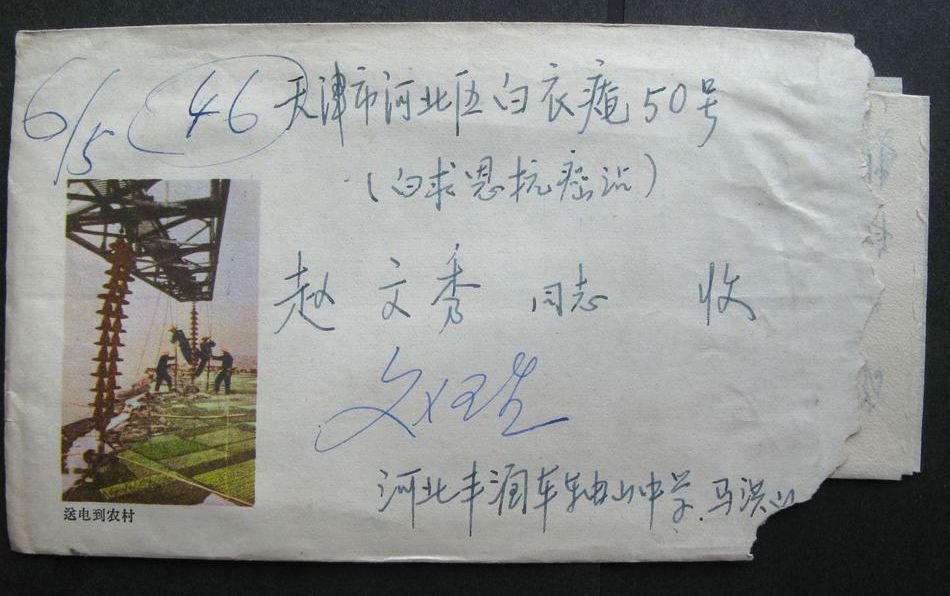 6/5 46 天津市河北区白衣庵50号
(白求恩抗癌站)
赵文秀 同志 收
送电到农村
河北丰润车轴山中学.马洪